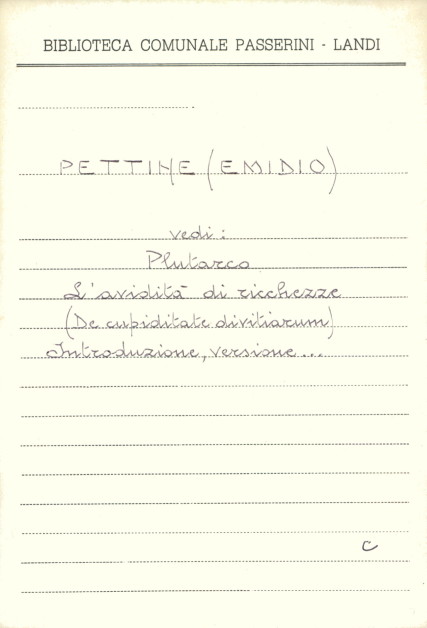 BIBLIOTECA COMUNALE PASSERINI - LANDI
PETTINE (EMIDIO)
vedi:
Plutarco
L'avidità di ricchezze
(De cupiditate divitiarum)
Introduzione, versione...
C